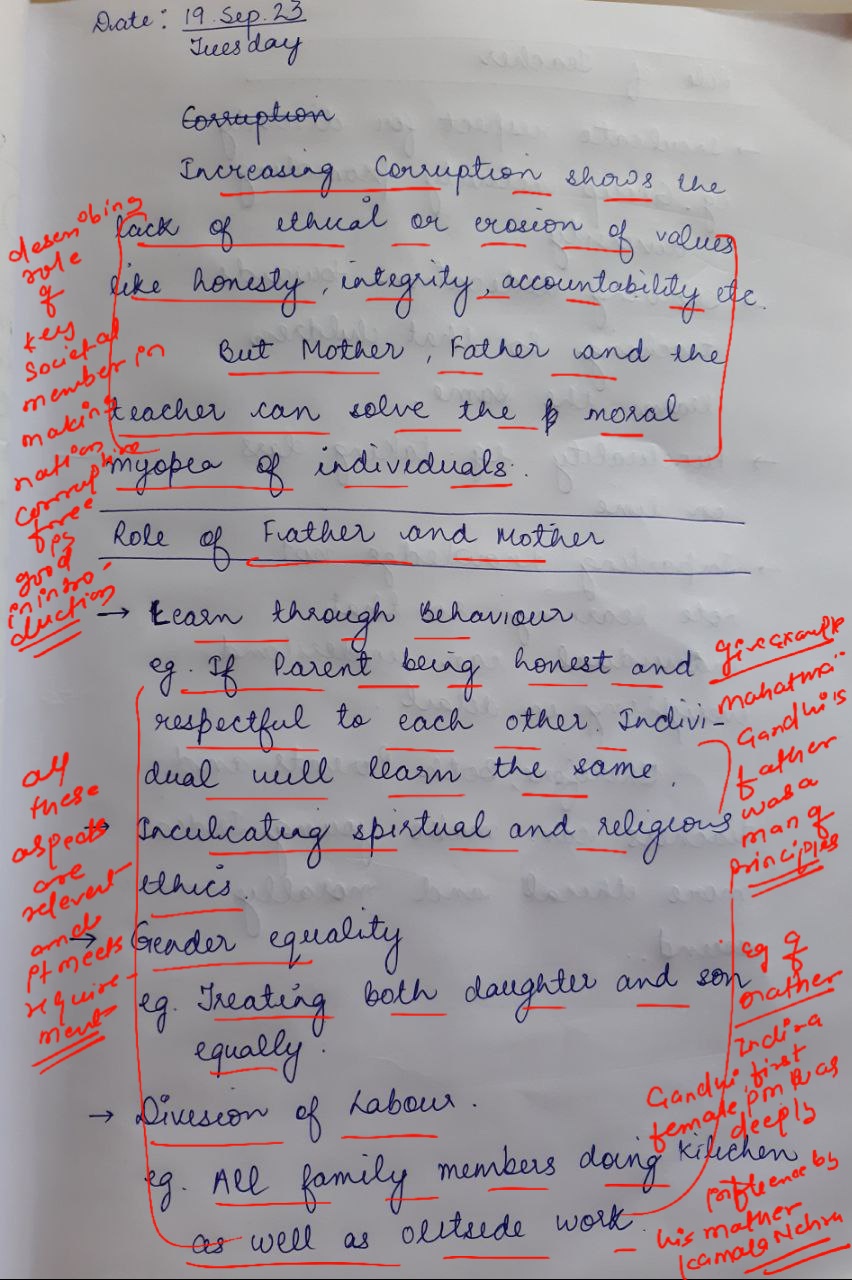 Date: 19.Sep.23
Tuesday
Corruption
Increasing Corruption shows the
lack of ethical or erosion of values
like honesty, integrity, accountability etc.
But Mother, Father and the
teacher can solve the moral
myopea of individuals.
Role of Father and Mother
→ Learn through Behaviour
eg. If Parent being honest and
respectful to each other. Indivi-
dual will learn the same.
→ Inculcating spirtual and religious
ethics.
→ Gender equality
eg. Treating both daughter and son
equally.
→ Division of Labour.
eg. All family members doing kitchen
as well as outside work.
role
of
key
Societal
member in
making
nation
free
is
good
in intro-
duction
all
these
aspects
are
relevent
and
meets
require-
ment
give example
mahatma
Gandhi's
father
was a
man of
principles
eg of
mather
Indira
Gandhi, first
female pm was
deeply
by
his mather
kamala Nehru